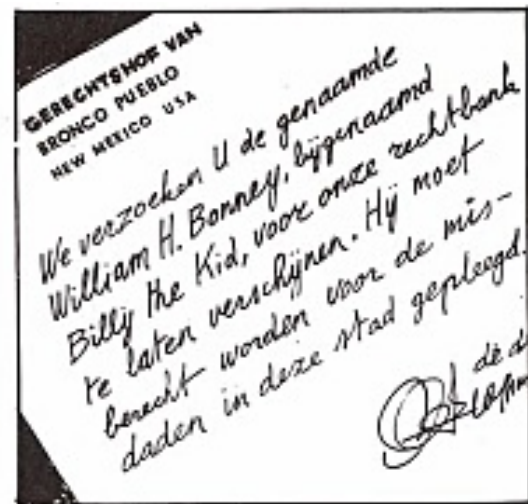 GERECHTSHOF VAN
BRONCO PUEBLO
NEW MEXICO USA
We verzoeken U de genaamde
William H. Bonney, bijgenaamd
Billy the Kid, voor onze rechtbank
te laten verschijnen. Hij moet
berecht worden voor de mis-
daden in deze stad gepleegd.